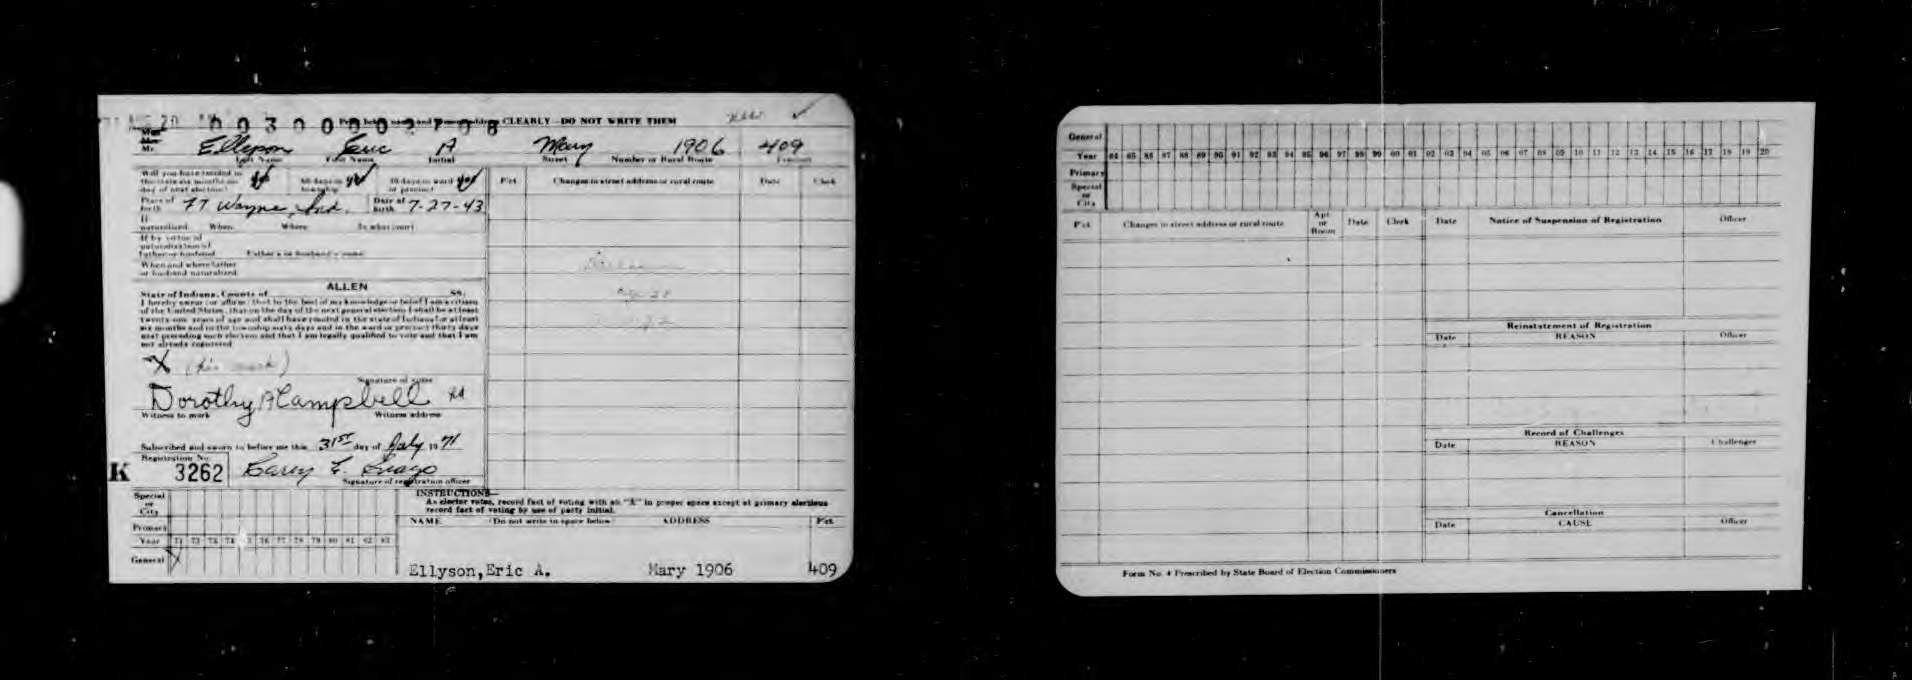 AUG 20
00300002708
Print below name and home address CLEARLY—DO NOT WRITE THEM
Mr. Ellyson Eric A Mary 1906 409
Last Name First Name Initial Street Number or Rural Route Precinct
Will you have resided in
the state six months on
day of next election? 60 days in township 30 days in ward or precinct
Pct. Changes in street address or rural route Date Clerk
Place of birth FT Wayne, Ind. Date of birth 7-27-43
If
naturalized When Where In what court
If by virtue of
naturalization of
father or husband Father's or husband's name
When and where father
or husband naturalized
State of Indiana, County of ALLEN SS:
I hereby swear (or affirm) that to the best of my knowledge or belief I am a citizen
of the United States, that on the day of the next general election I shall be at least
twenty-one years of age and shall have resided in the state of Indiana for at least
six months and in the township sixty days and in the ward or precinct thirty days
next preceding such election and that I am legally qualified to vote and that I am
not already registered
X (his mark)
Signature of voter
Dorothy A Campbell
Witness to mark Witness address
Subscribed and sworn to before me this 31ST day of July 1971
Registration No.
K 3262
Signature of registration officer
Special
or
City
Primary
Year 71 72 73 74 76 77 78 79 80 81 82 83
General X
INSTRUCTIONS—
As elector votes, record fact of voting with an "X" in proper space except at primary elections
record fact of voting by use of party initial.
NAME (Do not write in space below) ADDRESS Pct.
Ellyson,Eric A. Mary 1906 409
General
Year 84 85 86 87 88 89 90 91 92 93 94 95 96 97 98 99 00 01 02 03 04 05 06 07 08 09 10 11 12 13 14 15 16 17 18 19 20
Primary
Special
or
City
Pct. Changes in street address or rural route Apt. or Room Date Clerk
Date Notice of Suspension of Registration Officer
Reinstatement of Registration
Date REASON Officer
Record of Challenges
Date REASON Challenger
Cancellation
Date CAUSE Officer
Form No. 4 Prescribed by State Board of Election Commissioners